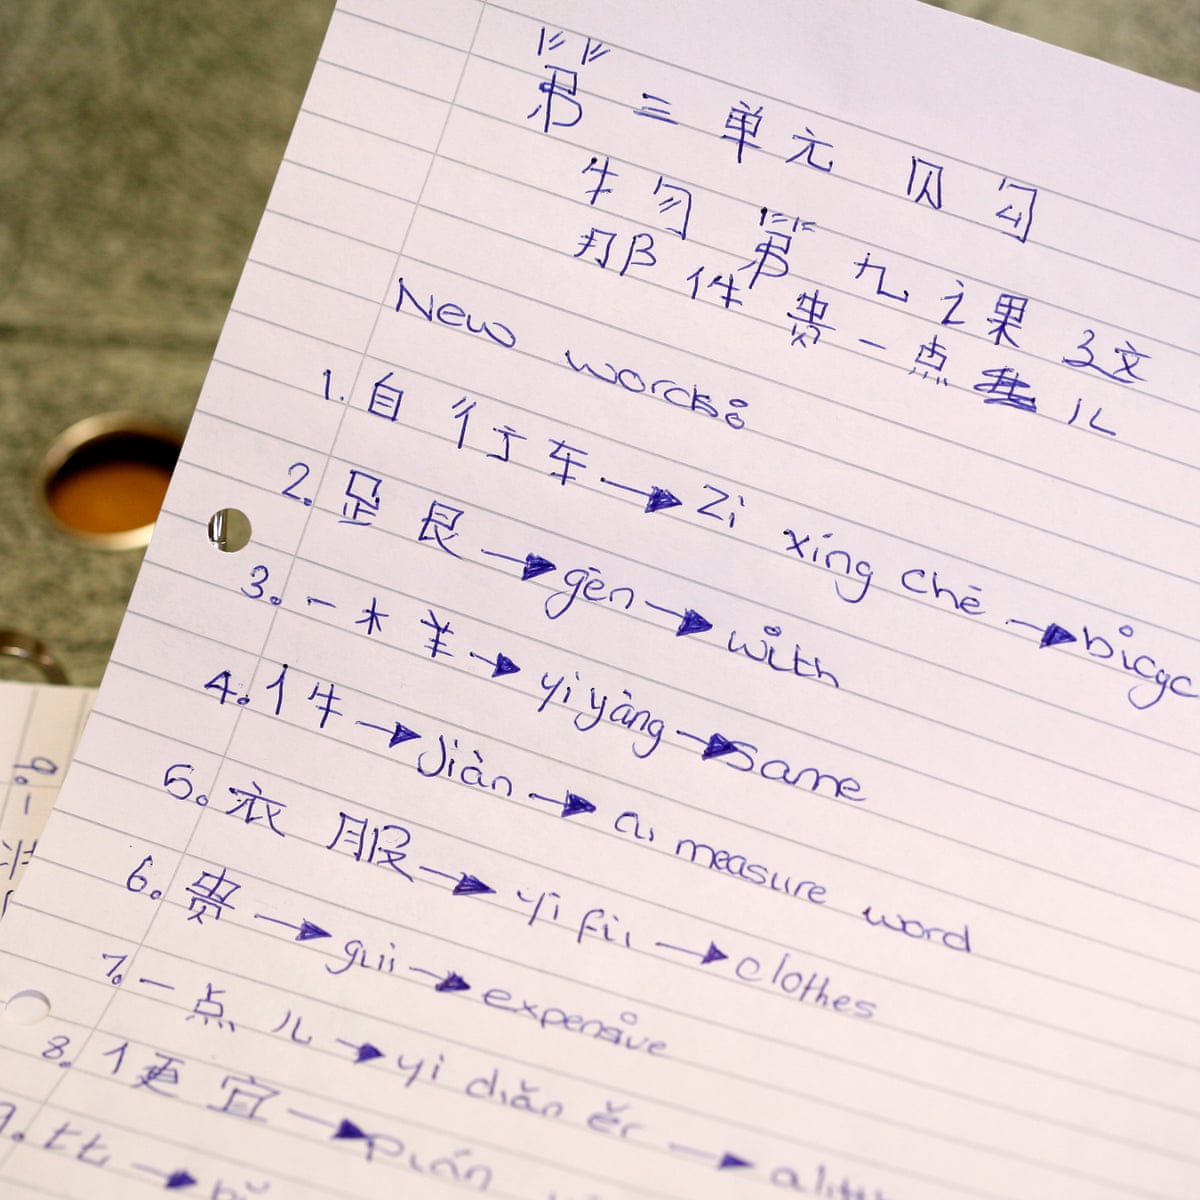 第三单元 购
物 第九课 课文
那件贵一点儿
New words
1. 自行车 → zì xíng chē → bicyc
2. 跟 → gēn → with
3. 一样 → yī yàng → same
4. 件 → jiàn → a measure word
5. 衣服 → yī fú → clothes
6. 贵 → guì → expensive
7. 一点儿 → yī diǎn ěr → a litt
8. 便宜 → pián
9. 比 → bǐ